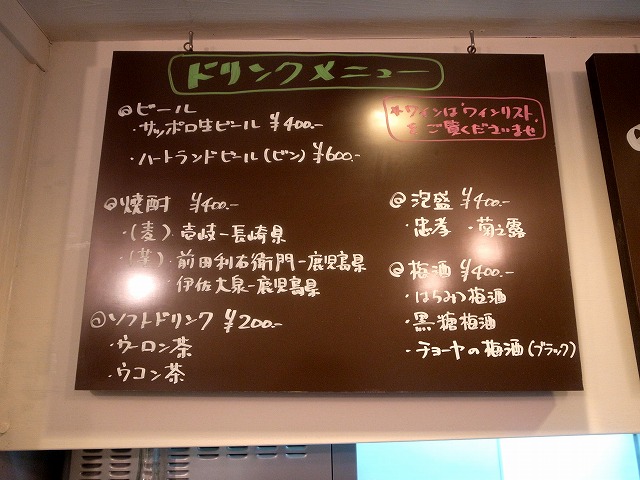 ドリンクメニュー
◎ビール
・サッポロ生ビール ¥400.-
・ハートランドビール(ビン) ¥600.-
*ワインは'ワインリスト'
をご覧くださいませ
◎焼酎 ¥400.-
・(麦) 壱岐-長崎県
・(芋)・前田利右衛門-鹿児島県
・伊佐大泉-鹿児島県
◎ソフトドリンク ¥200.-
・ウーロン茶
・ウコン茶
◎泡盛 ¥400.-
・忠孝 ・菊之露
◎梅酒 ¥400.-
・はちみつ梅酒
・黒糖梅酒
・チョーヤの梅酒(ブラック)